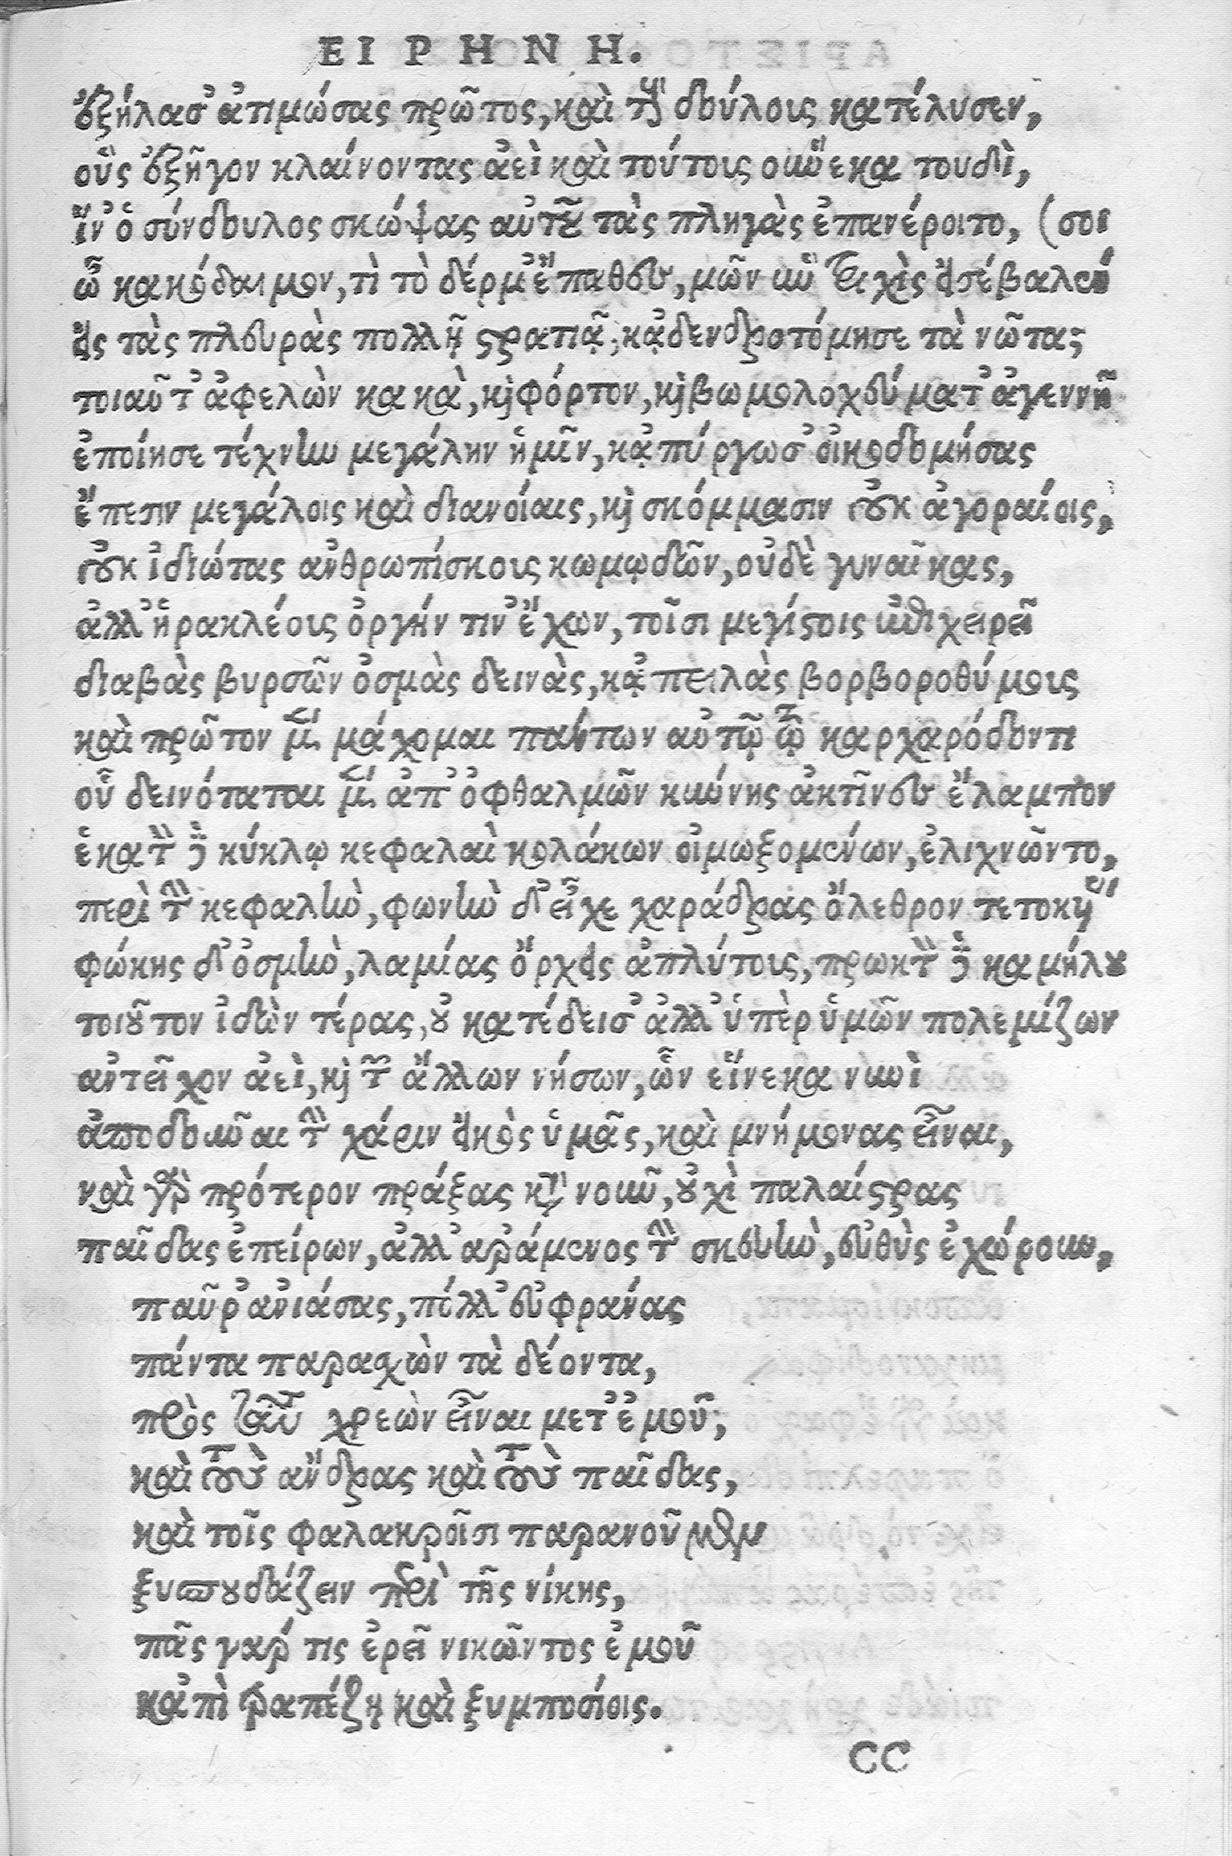 ΕΙΡΗΝΗ.
ἐξήλασ' ἀτιμώσας πρῶτος, καὶ τοὺς δούλους κατέλυσεν,
οὓς ἐξῆγον κλαίνοντας ἀεὶ καὶ τούτοις οὕνεκα τουδὶ,
ἵν' ὁ σύνδουλος σκώψας αὐτοῦ τὰς πληγὰς ἐπανέροιτο, (σοι
ὦ κακόδαιμον, τὶ τὸ δέρμ' ἔπαθες, μῶν ὑστριχὶς εἰσέβαλέν
εἰς τὰς πλευρὰς πολλῇ στρατιᾷ, κᾀδενδροτόμησε τὰ νῶτα;
τοιαῦτ' ἀφελὼν κακὰ, καὶ φόρτον, καὶ βωμολοχεύματ' ἀγεννῆ
ἐποίησε τέχνην μεγάλην ἡμῖν, κᾀπύργωσ' οἰκοδομήσας
ἔπεσιν μεγάλοις καὶ διανοίαις, καὶ σκόμμασιν οὐκ ἀγοραίοις,
οὐκ ἰδιώτας ἀνθρωπίσκους κωμῳδῶν, οὐδὲ γυναῖκας,
ἀλλ' ἡρακλέους ὀργήν τιν' ἔχων, τοῖσι μεγίστοις ἐπιχειρεῖ
διαβὰς βυρσῶν ὀσμὰς δεινὰς, κᾀπειλὰς βορβοροθύμοις
καὶ πρῶτον μὲν μάχομαι πάντων αὐτῷ τῷ καρχαρόδοντι
οὗ δεινόταται μὲν ἀπ' ὀφθαλμῶν κύνης ἀκτῖνες ἔλαμπον
ἑκατὸν δὲ κύκλῳ κεφαλαὶ κολάκων οἰμωξομένων, ἐλιχνῶντο,
περὶ τὴν κεφαλὴν, φωνὴν δ' εἶχε χαράδρας ὄλεθρον τετοκυίας
φώκης δ' ὀσμὴν, λαμίας ὄρχεις ἀπλύτους, πρωκτὸν δὲ καμήλου
τοιοῦτον ἰδὼν τέρας, οὐ κατέδεισ' ἀλλ' ὑπὲρ ὑμῶν πολεμίζων
ἀντεῖχον ἀεὶ, καὶ τῶν ἄλλων νήσων, ὧν εἵνεκα νυνὶ
ἀποδοῦναι τὴν χάριν εἰκὸς ὑμᾶς, καὶ μνήμονας εἶναι,
καὶ γὰρ πρότερον πράξας κατὰ νοῦν, οὐχὶ παλαίστρας
παῖδας ἐπείρων, ἀλλ' ἀράμενος τὴν σκευὴν, εὐθὺς ἐχώρουν,
παῦρ' ἀνιάσας, πόλλ' εὐφράνας
πάντα παρασχὼν τὰ δέοντα,
πρὸς ταῦτα χρεὼν εἶναι μετ' ἐμοῦ,
καὶ τοὺς ἄνδρας καὶ τοὺς παῖδας,
καὶ τοῖς φαλακροῖσι παρανοῦμεν
ξυσπουδάζειν περὶ τῆς νίκης,
πᾶς γάρ τις ἐρεῖ νικῶντος ἐμοῦ
κᾀπὶ τραπέζῃ καὶ ξυμποσίοις.
CC